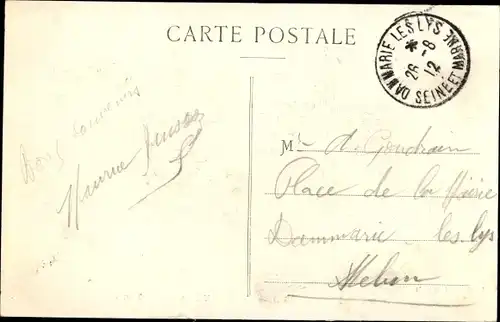 CARTE POSTALE
DAMMARIE LES LYS
* 8
26 12
SEINE ET MARNE
Bons souvenirs
Maurice
M. A. Goudrain
Place de la Mairie
Dammarie-les-lys
Melun